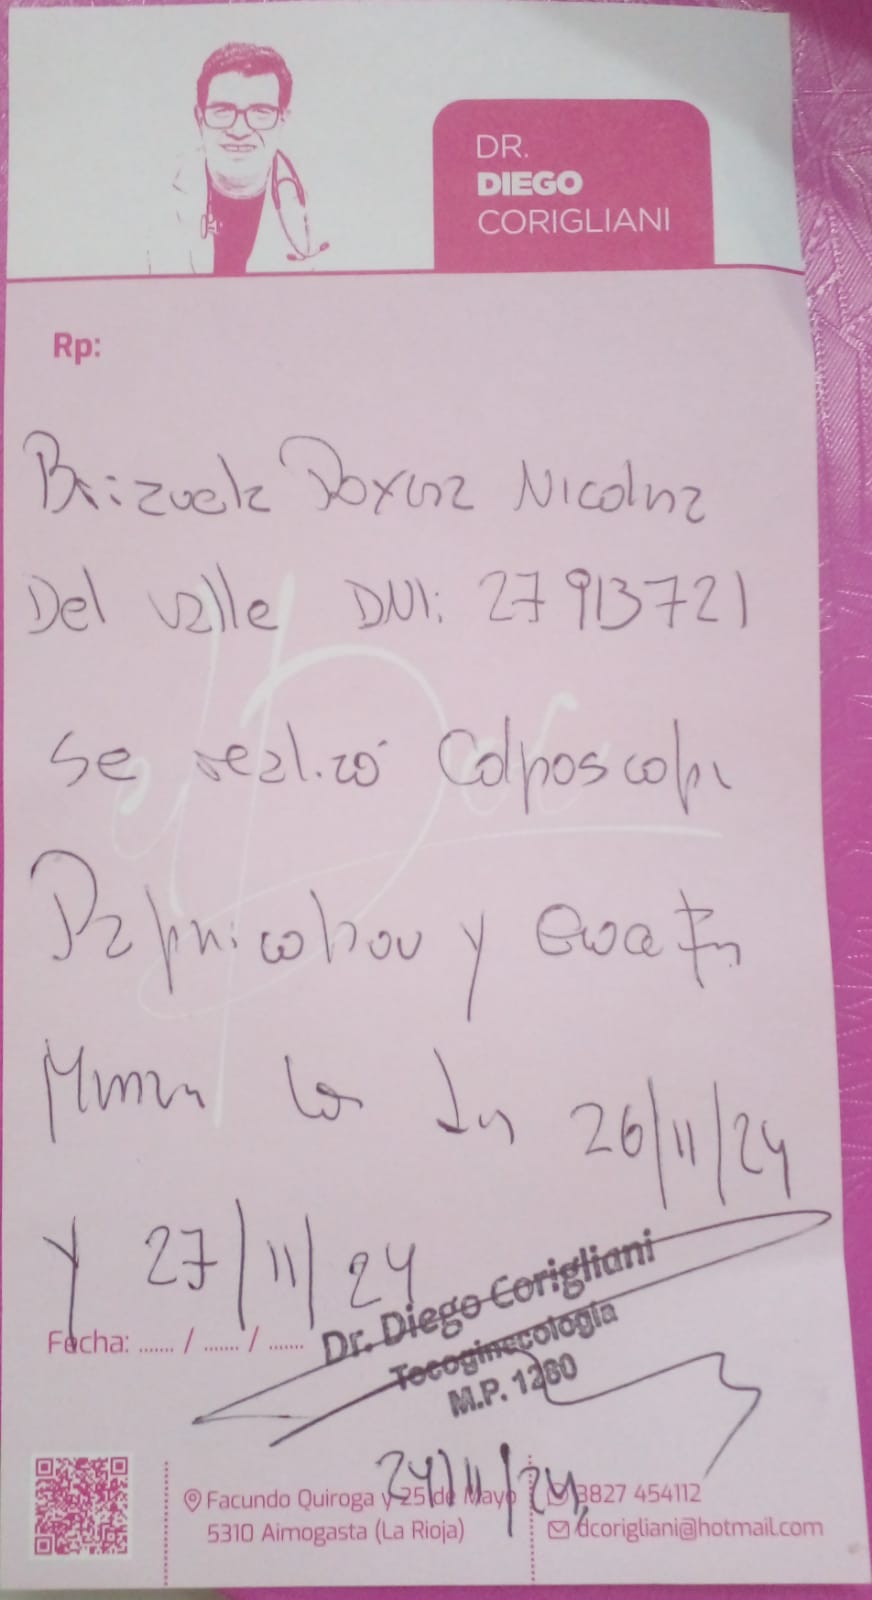 DR.
DIEGO
CORIGLIANI
Rp:
Brizuela Roxana Nicolasa
Del valle DNI: 27 913721
Se realizó Colposcopi
Papanicolaou y
26/11/24
Y 27/11/24
Fecha: ....... / ....... / .......
Dr. Diego Corigliani
Tocoginecología
M.P. 1280
24/11/24
Facundo Quiroga y 25 de Mayo
5310 Aimogasta (La Rioja)
3827 454112
dcorigliani@hotmail.com